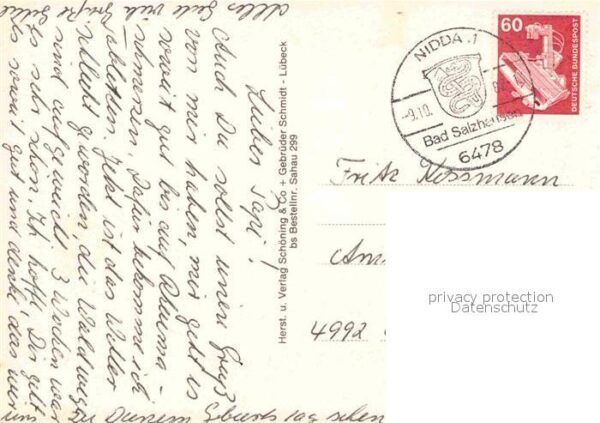 Lieber Papi!
Auch Du sollst einen Gruß
von mir haben, mir geht es
soweit gut bis auf Rheuma-
schmerzen. Dafür bekomme ich
Jetzt ist das Wetter
schlecht geworden, die Waldwege
sind aufgeweicht. 3 Wochen war
es sehr schön. Ich hoffe, Dir geht
es soweit gut und denke, das wir
uns zu Deinem Geburtstag sehen
Alles Gute viele Grüße
Herst. u. Verlag Schöning & Co + Gebrüder Schmidt - Lübeck
bs Bestellnr. Sahau 299
NIDDA 1
-9.10.
Bad Salzhausen
6478
60
DEUTSCHE BUNDESPOST
Fritz Kossmann
Am
4992
privacy protection
Datenschutz